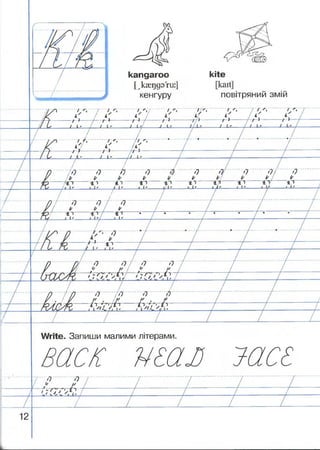 K k
kangaroo kite
[ˌkæŋgəˈruː] [kaɪt]
кенгуру повітряний змій
K K K K K K K K
K K K
k k k k k k k k k
k k k
K k K k
back back back
kick kick kick
Write. Запиши малими літерами.
BACK HEAD FACE
back
12